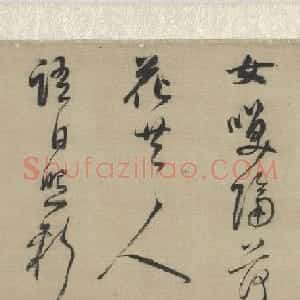 女笑隔荷
花共人
語日照新
Shufaziliao.com